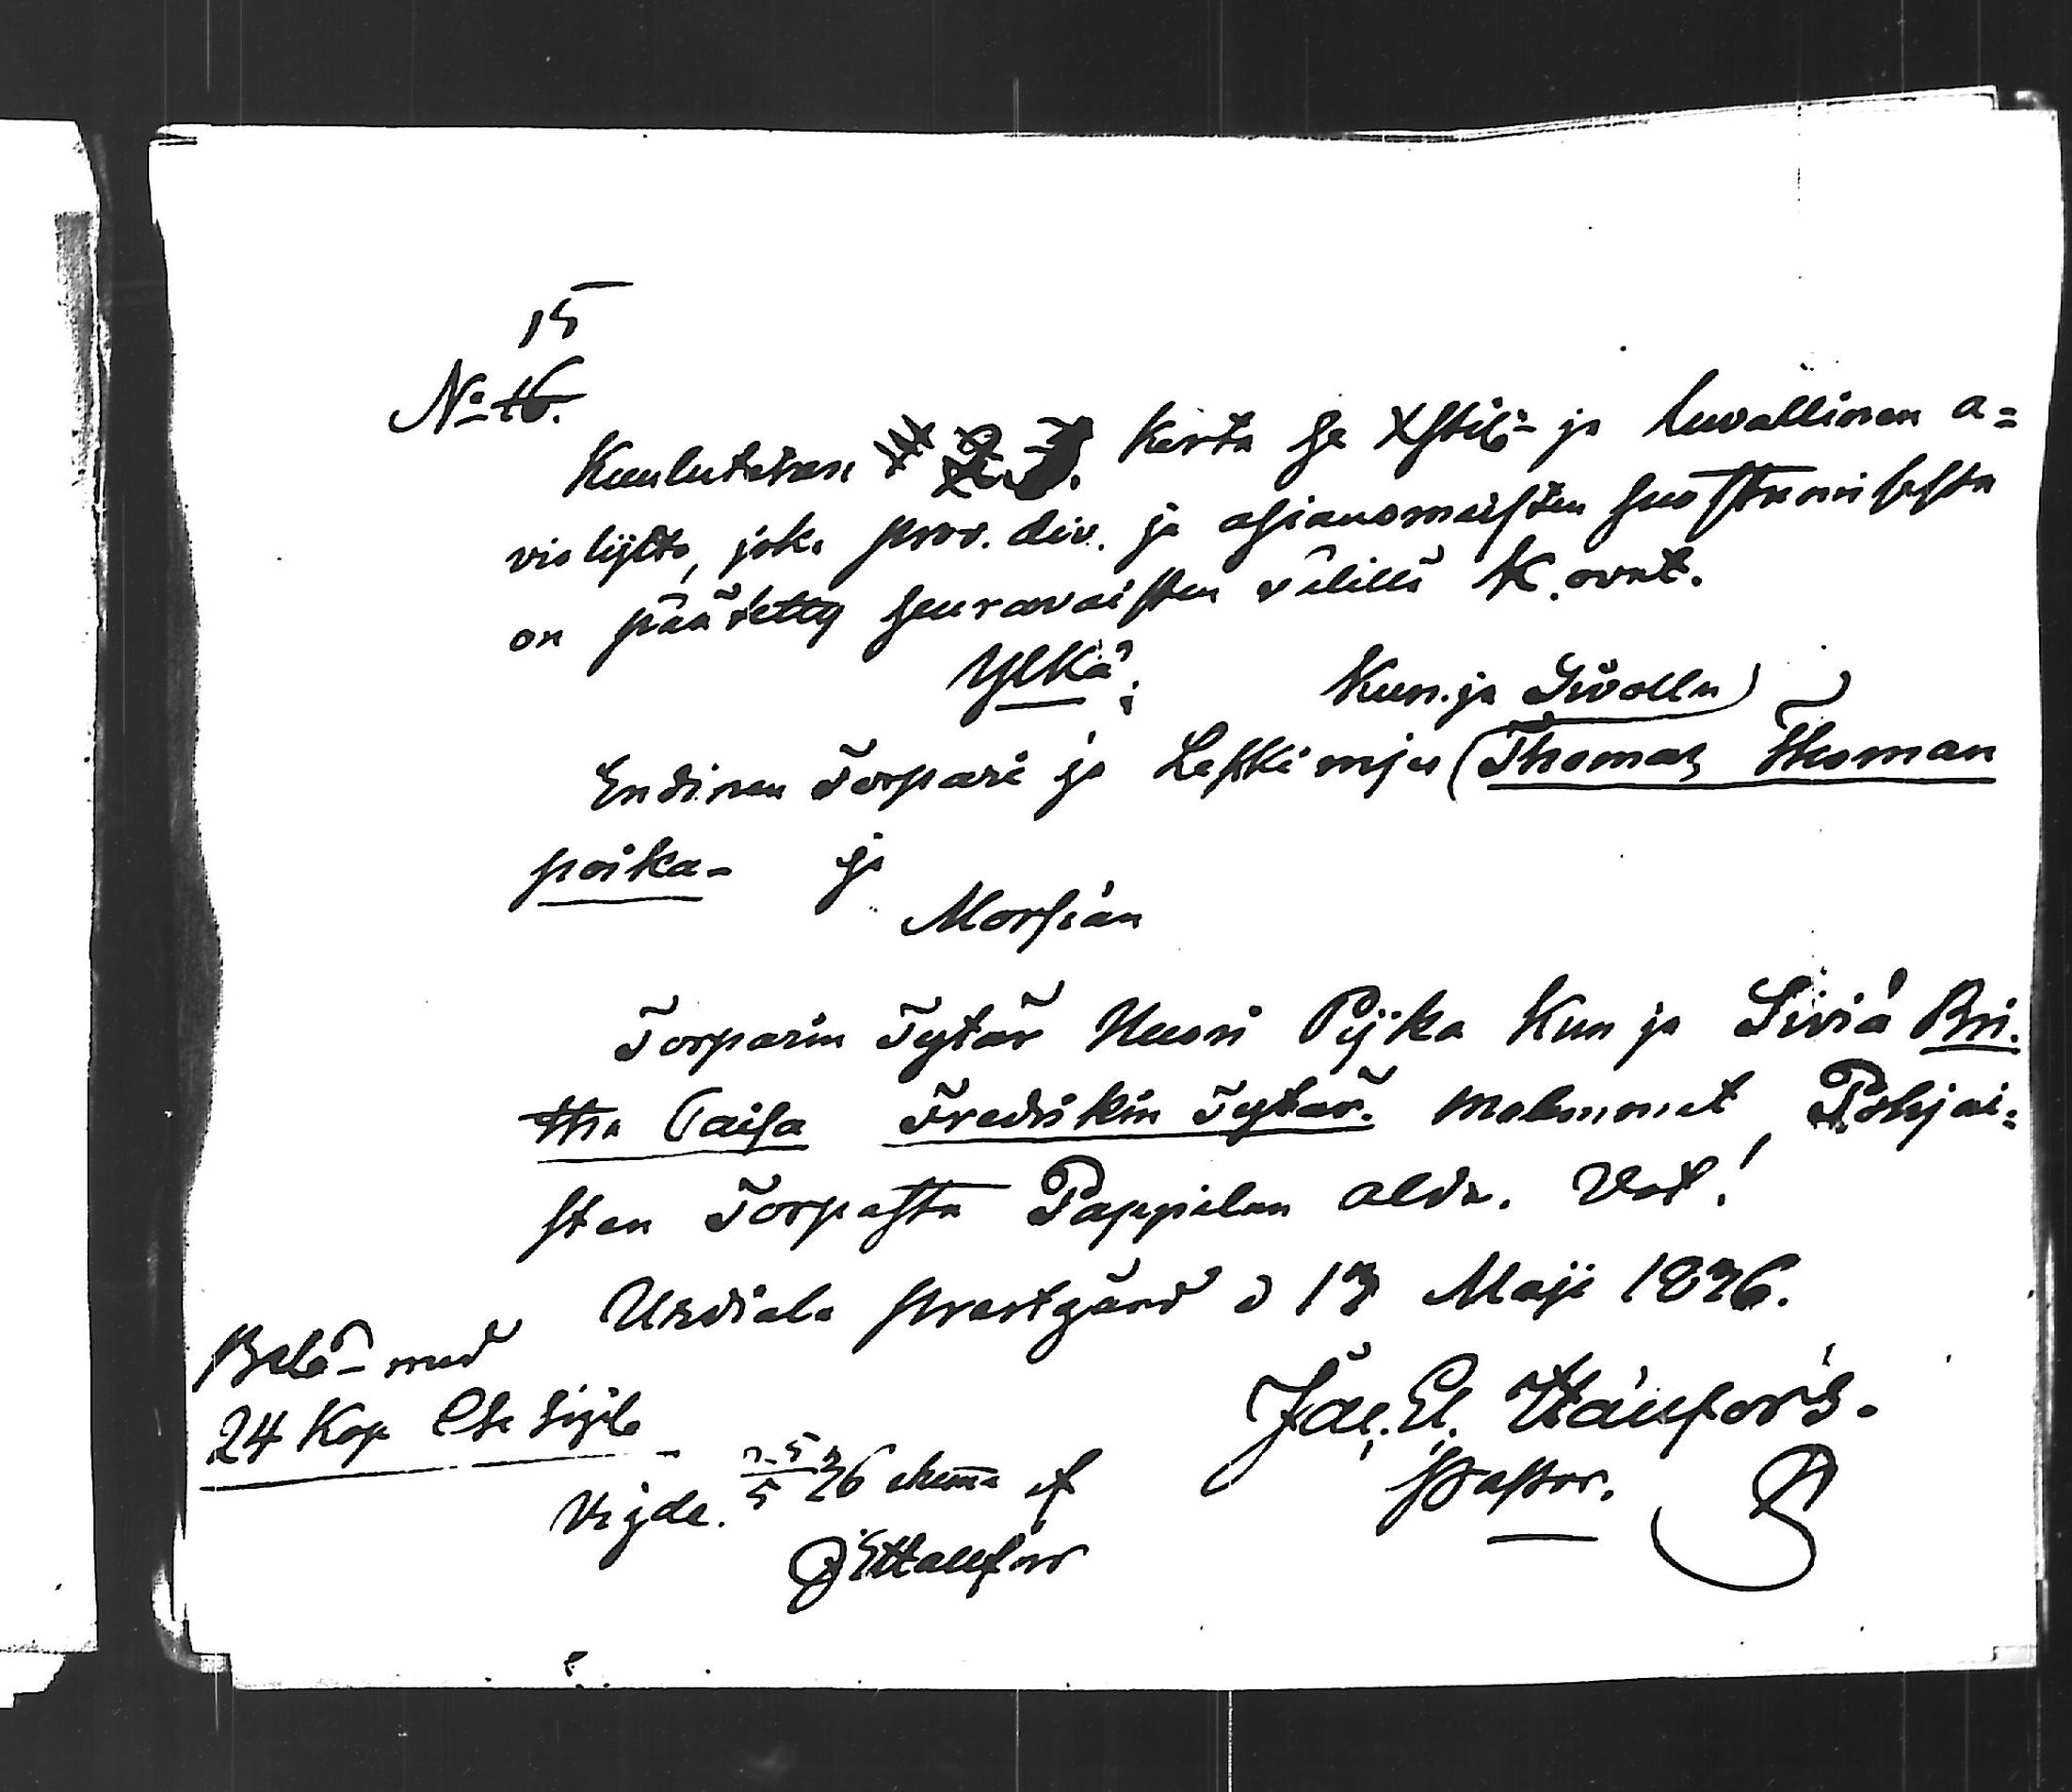 15
No 16.
Kuulutetan 1 2 3. Kerta se Xstil- ja luvallinen a=
violijtto, joka prov. div. ja asianomaisten suostumisesta
on päätetty seuravaisten välillä K. ovat.
Ylkä:
Kun. ja Sivolln
Endinen Torpari ja Leskimies (Thomas Thoman
poika- ja
Morsian
Torparin Tytär Nuori Pijka Kun ja Siviä Bri.
tta Caisa Fredrikin Tytär. molemmat, Pohjai=
sten Torpasta Pappilan alda. Vot!
Urdiala prestgård d 13 Maji 1836.
Belö- med
24 Kop
Jac. El.
Pastor.
Vigde. 5 36 af